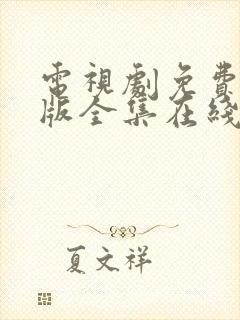 電視劇免費
版全集在綫
夏文祥